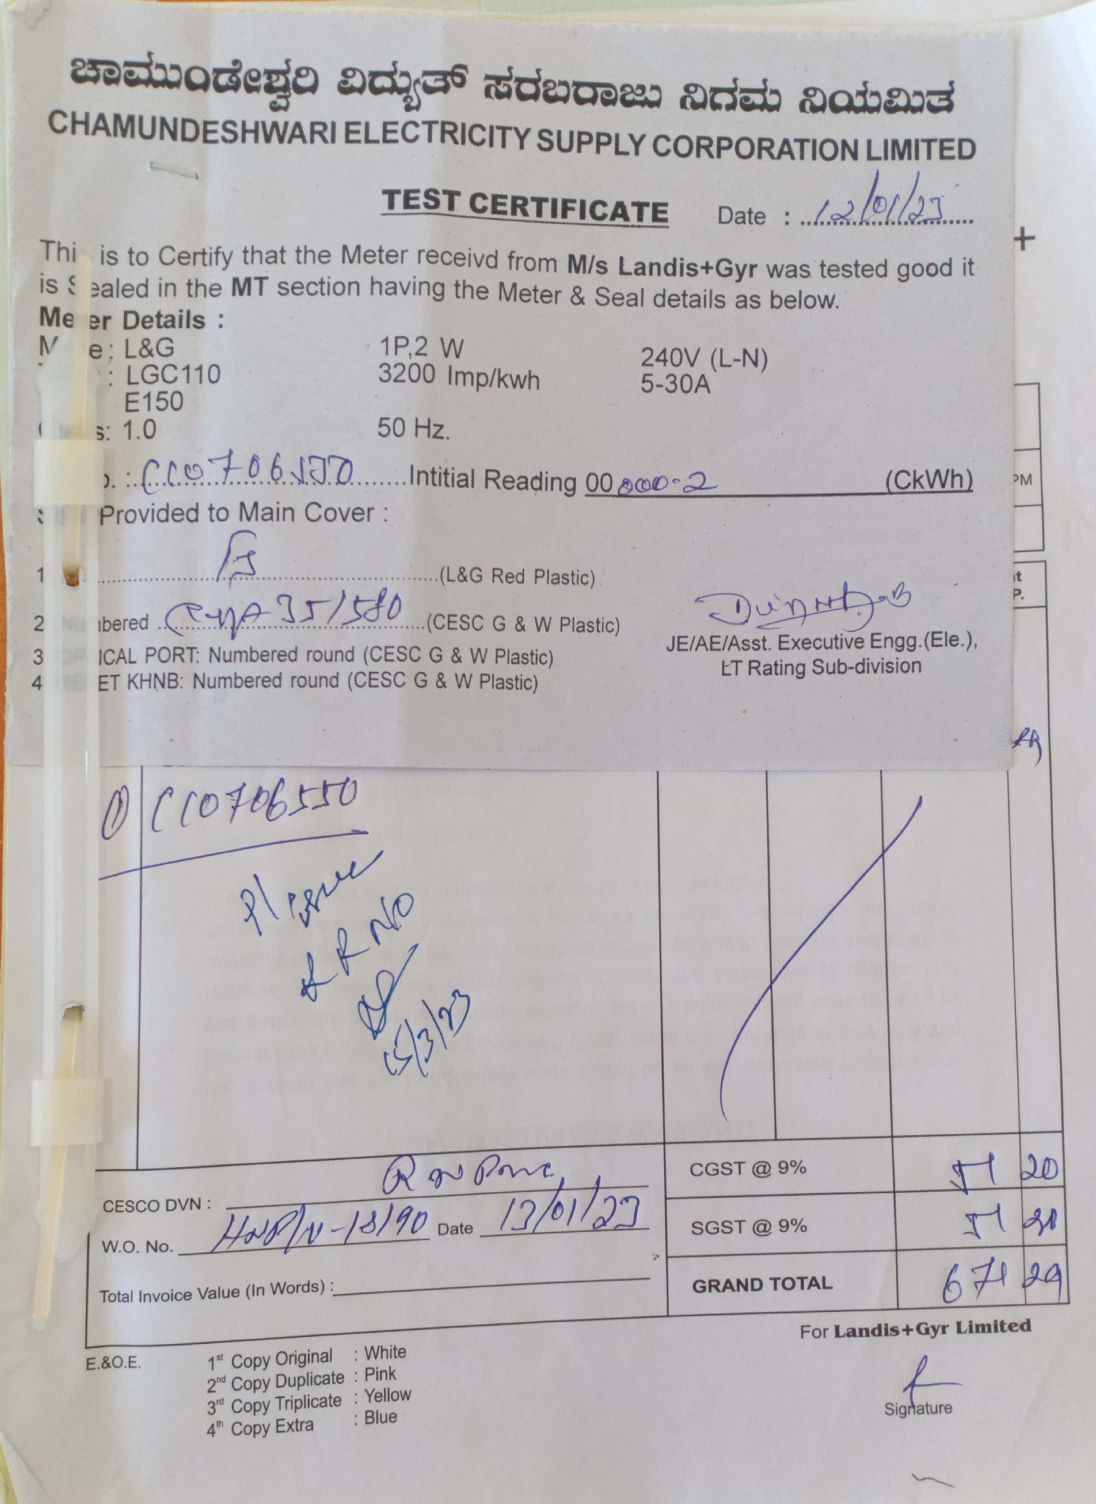 ಚಾಮುಂಡೇಶ್ವರಿ ವಿದ್ಯುತ್ ಸರಬರಾಜು ನಿಗಮ ನಿಯಮಿತ
CHAMUNDESHWARI ELECTRICITY SUPPLY CORPORATION LIMITED
TEST CERTIFICATE Date : 12/01/23
is to Certify that the Meter receivd from M/s Landis+Gyr was tested good it
is ealed in the MT section having the Meter & Seal details as below.
Me er Details :
e : L&G 1P,2 W 240V (L-N)
: LGC110 3200 Imp/kwh 5-30A
E150
s: 1.0 50 Hz.
CC0706550 Intitial Reading 00 000-2 (CkWh)
Provided to Main Cover :
1 (L&G Red Plastic)
2 bered 351580 (CESC G & W Plastic)
3 ICAL PORT: Numbered round (CESC G & W Plastic)
4 ET KHNB: Numbered round (CESC G & W Plastic)
JE/AE/Asst. Executive Engg.(Ele.),
LT Rating Sub-division
PM
① CC0706550
Pl issue
R R NO
15/3/23
CGST @ 9% 51 20
CESCO DVN :
SGST @ 9% 51
W.O. No. Date 13/01/23
GRAND TOTAL 671 29
Total Invoice Value (In Words) :
For Landis+Gyr Limited
E.&O.E.
1st Copy Original : White
2nd Copy Duplicate : Pink
3rd Copy Triplicate : Yellow
4th Copy Extra : Blue
Signature